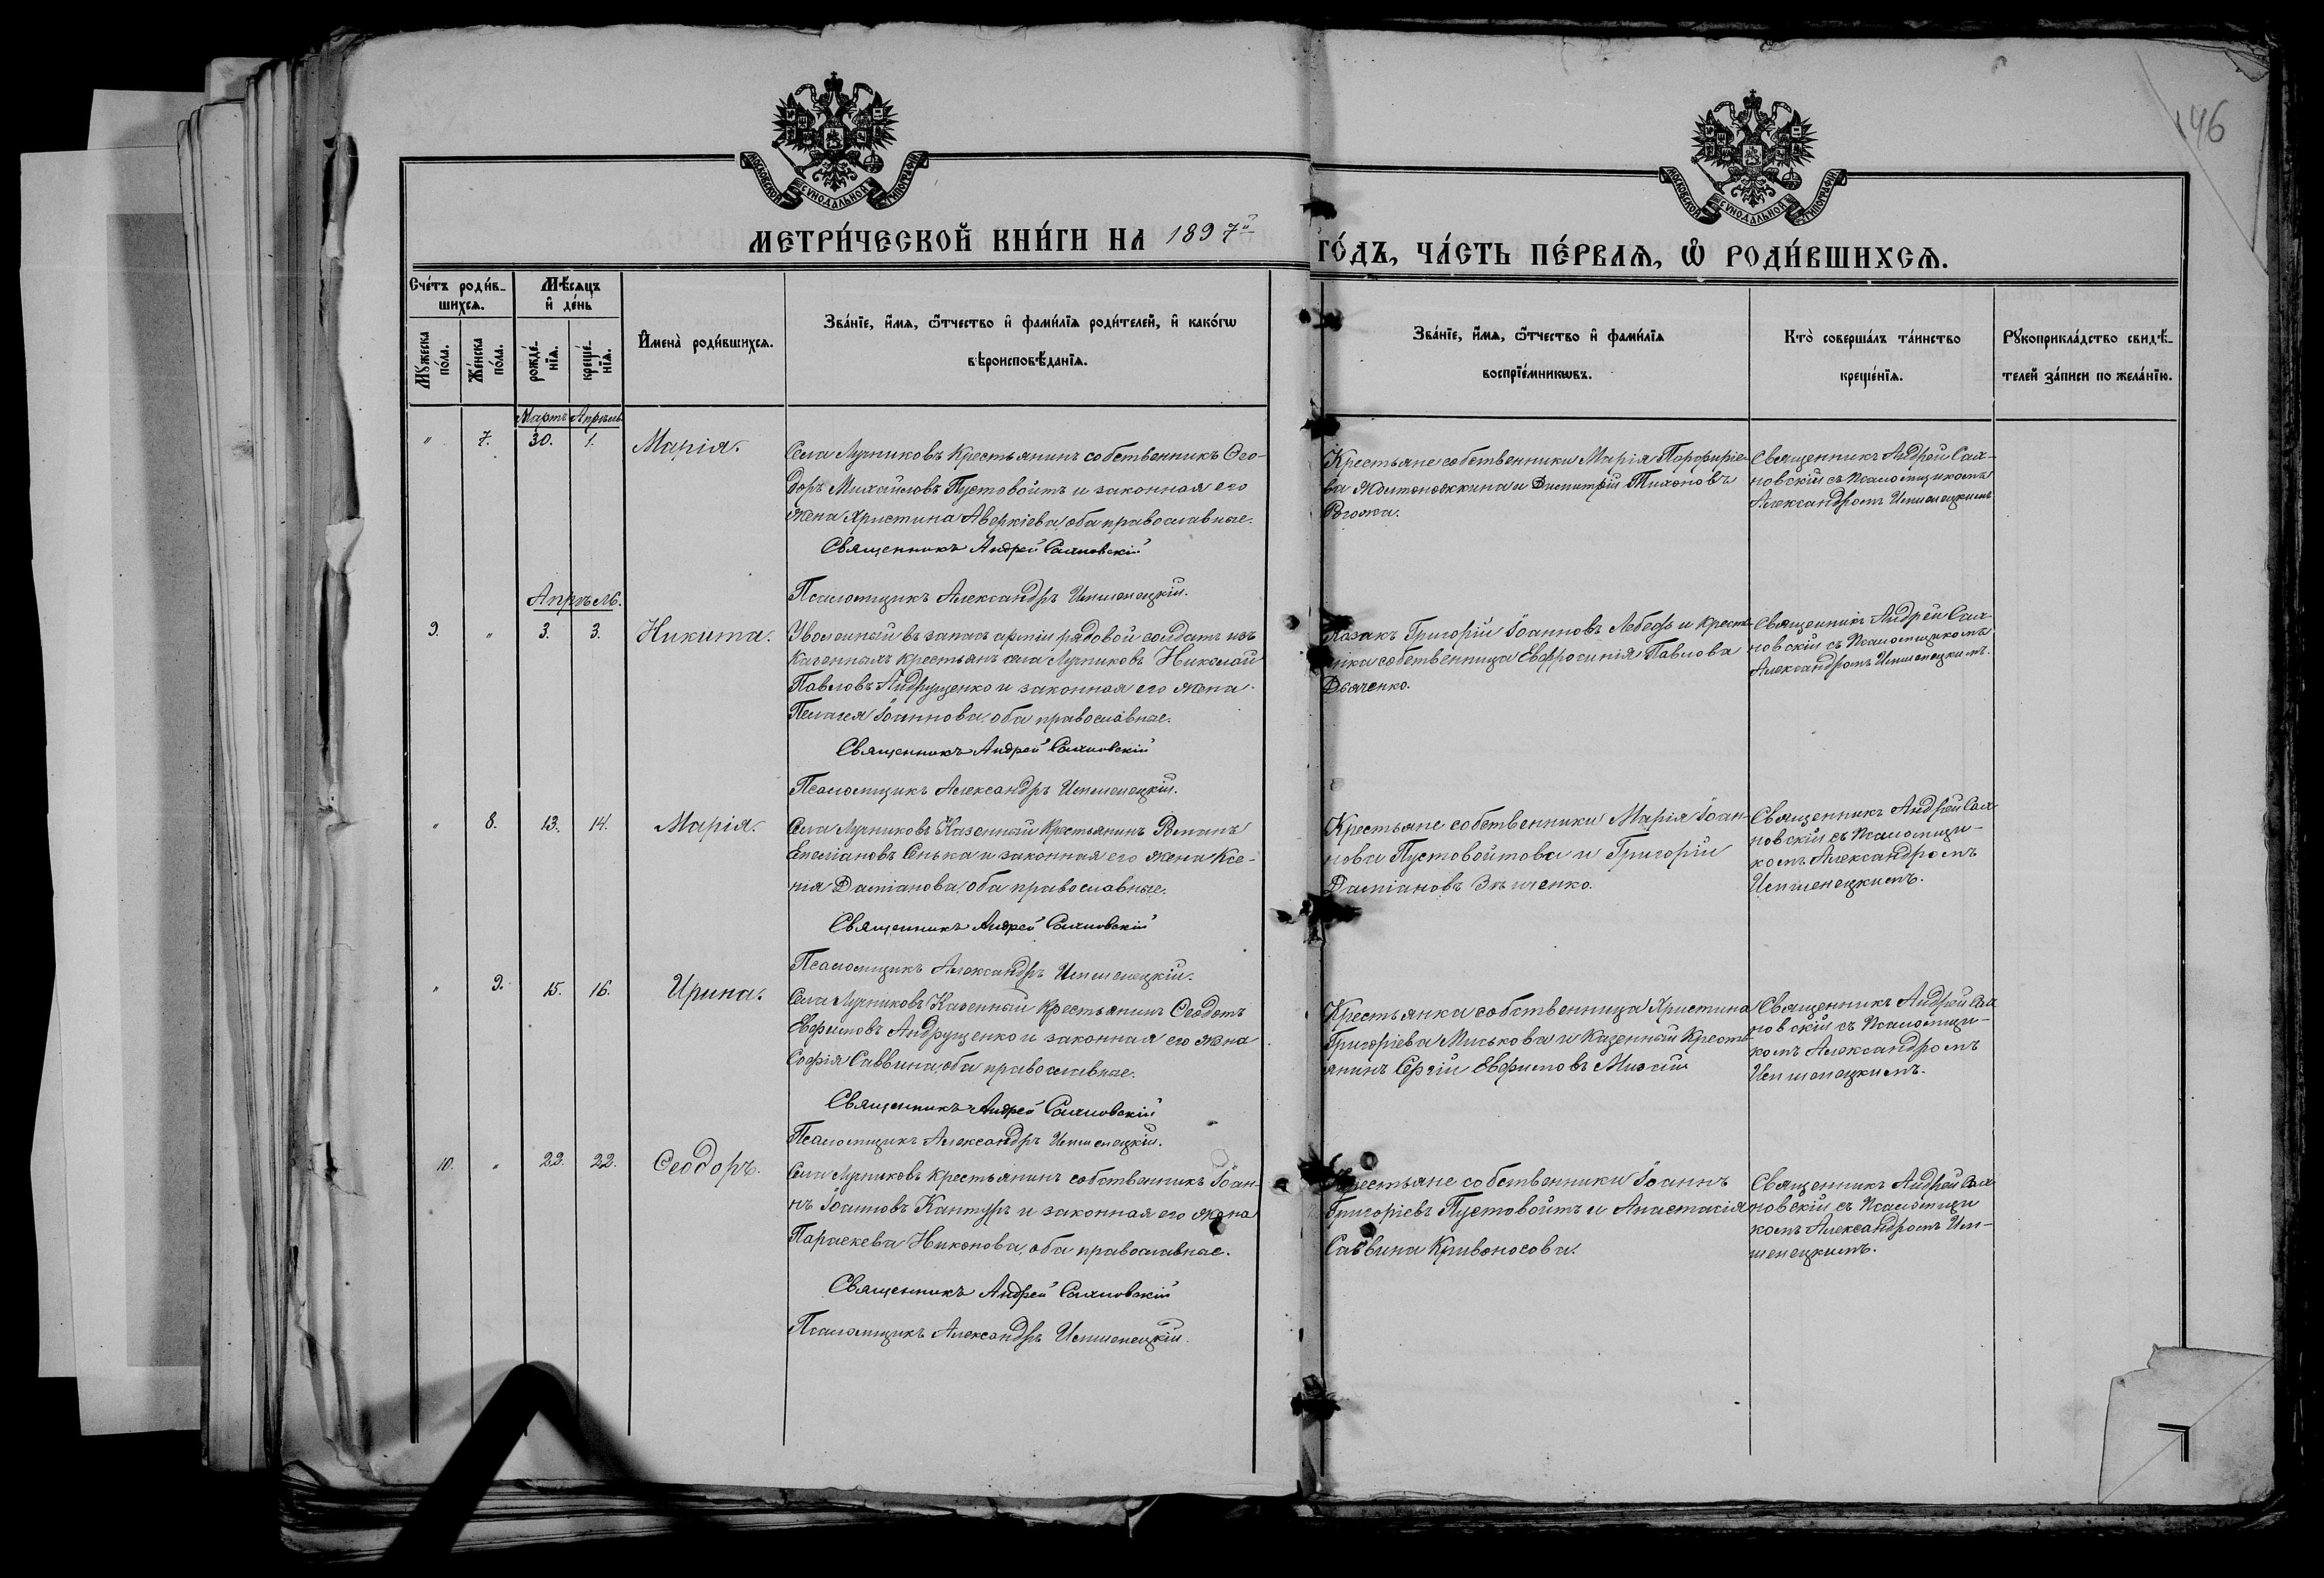 146
МОСКОВСКОЙ СѴНОДАЛЬНОЙ ТИПОГРАФІИ
МОСКОВСКОЙ СѴНОДАЛЬНОЙ ТИПОГРАФІИ
МЕТРИ́ЧЕСКОЙ КНИ́ГИ НА 1897й
ГО́ДЪ, ЧА́СТЬ ПЕ́РВАѦ, Ѡ РОДИ́ВШИХСѦ.
Счéтъ роди́в-
шихсѧ.
Мѣ́сѧцъ
и҆ де́нь
Мꙋ́жеска
по́ла.
Же́нска
по́ла.
рожде́-
нїѧ.
креще́-
нїѧ.
И҆мена̀ роди́вшихсѧ.
Зва́нїе, и҆́мѧ, ѻ҆́тчество и҆ фами́лїѧ роди́телей, и҆ како́гѡ
вѣроисповѣ́данїѧ.
Зва́нїе, и҆́мѧ, ѻ҆́тчество и҆ фами́лїѧ
воспрїе́мникѡвъ.
Кто̀ соверша́лъ та́инство
креще́нїѧ.
Рꙋкоприкла́дство свидѣ́-
телей за́писи по жела́нїю.
Мартъ Апрѣль
" 7. 30. 1. Марія.
Села Лучниковъ Крестьянинъ собственникъ Ѳео-
доръ Михайловъ Пустовойтъ и законная его
жена Христина Аверкіева, оба православные.
Священникъ Андрей
Псаломщикъ Александръ
Крестьяне собственники Марія Порфиріе-
ва и Димитрій Тихоновъ
Рогожа.
Священникъ Андрей
новскій съ Псаломщикомъ
Александромъ
Апрѣль.
9. " 3. 3. Никита.
Уволенный въ запасъ арміи рядовой солдатъ изъ
Казенныхъ крестьянъ села Лучниковъ Николай
Павловъ Андрущенко и законная его жена
Пелагея Іоаннова, оба православные.
Священникъ Андрей
Псаломщикъ Александръ
Козакъ Григорій Іоанновъ Лебедь и Кресть-
янка собственница Евфросинія Павлова
Дьяченко.
Священникъ Андрей
новскій съ Псаломщикомъ
Александромъ
" 8. 13. 14. Марія.
Села Лучниковъ Казенный Крестьянинъ Романъ
Емеліановъ Сенька и законная его жена Ксе-
нія Даміанова, оба православные.
Священникъ Андрей
Псаломщикъ Александръ
Крестьяне собственники Марія Іоан-
нова Пустовойтова и Григорій
Даміановъ
Священникъ Андрей
новскій съ Псаломщи-
комъ Александромъ
" 9. 15. 16. Ирина.
Села Лучниковъ Казенный Крестьянинъ Ѳеодотъ
Евфимовъ Андрущенко и законная его жена
Софія Саввина, оба православные.
Священникъ Андрей
Псаломщикъ Александръ
Крестьянка собственница Христина
Григоріева Миськова и Казенный Кресть-
янинъ Сергій Евфимовъ
Священникъ Андрей
новскій съ Псаломщи-
комъ Александромъ
10. " 22. 22. Ѳеодоръ.
Села Лучниковъ Крестьянинъ собственникъ Іоан-
нъ Іоанновъ Кантуръ и законная его жена
Параскева Никонова, оба православные.
Священникъ Андрей
Псаломщикъ Александръ
Крестьяне собственники Іоаннъ
Григоріевъ Пустовойтъ и Анастасія
Саввина Кривоносова.
Священникъ Андрей
новскій съ Псаломщи
комъ Александромъ